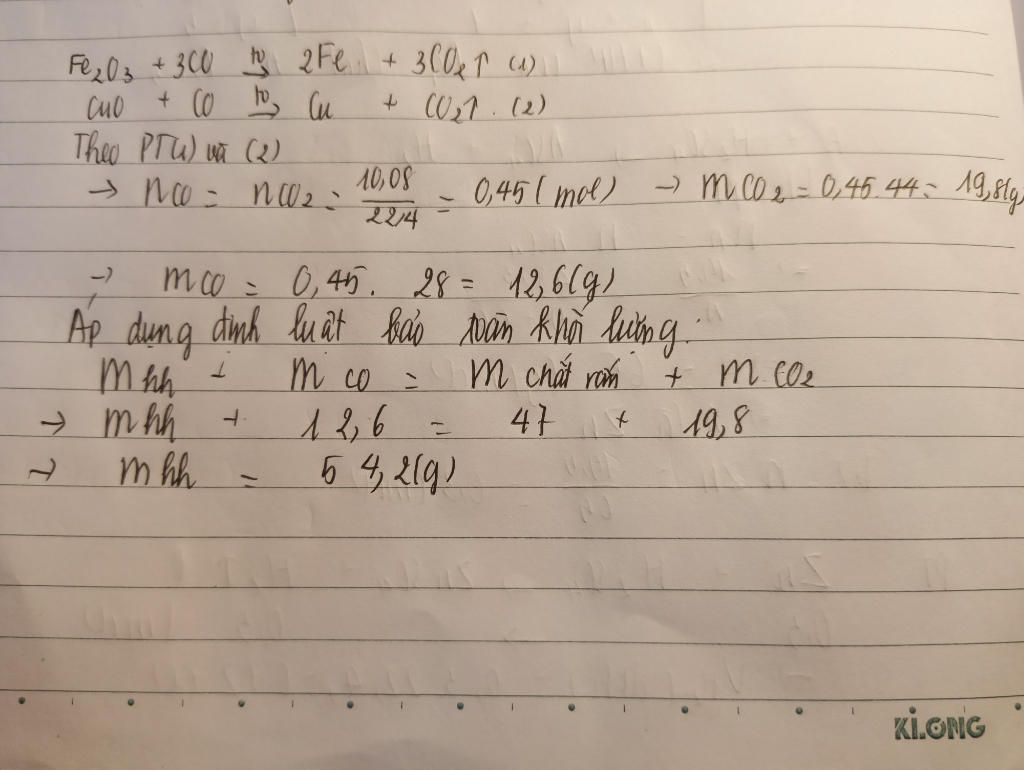 Fe2O3 + 3CO t0→ 2Fe + 3CO2↑ (1)
CuO + CO t0→ Cu + CO2↑. (2)
Theo PT(1) và (2)
→ nCO = nCO2 = 10,08/22,4 = 0,45 (mol) → mCO2 = 0,45.44 = 19,8(g)
→ mCO = 0,45. 28 = 12,6(g)
Áp dụng định luật bảo toàn khối lượng:
mhh + mCO = m chất rắn + mCO2
→ mhh + 12,6 = 47 + 19,8
→ mhh = 54,2(g)
KLONG